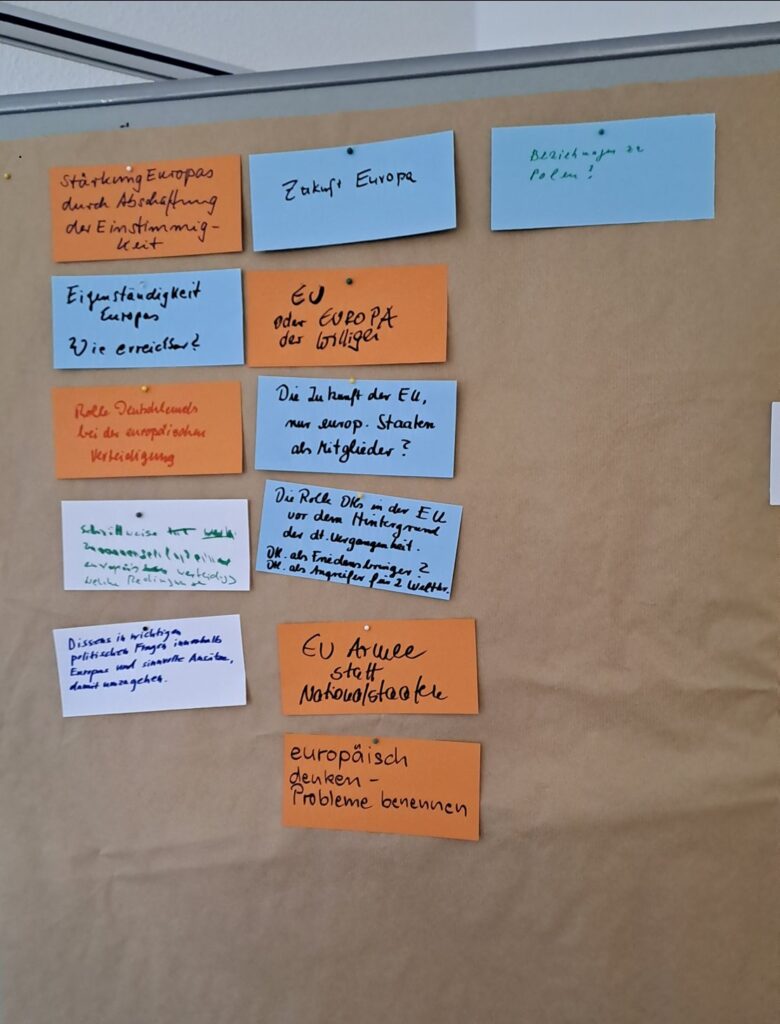 Stärkung Europas
durch Abschaffung
der Einstimmig-
keit
Eigenständigkeit
Europas
Wie erreichbar?
Rolle Deutschlands
bei der europäischen
Verteidigung
Schrittweise
europäis verteidig
welche
Dissens in wichtigen
politischen Fragen innerhalb
Europas und sinnvolle Ansätze,
damit umzugehen.
Zukunft Europa
EU
oder EUROPA
der Willigen
Die Zukunft der EU,
nur europ. Staaten
als Mitglieder?
Die Rolle Dtls in der EU
vor dem Hintergrund
der dt. Vergangenheit.
Dtl. als Friedensbringer?
Dtl. als Angreifer für 2 Weltkr.
EU Armee
statt
Nationalstaaten
europäisch
denken -
Probleme benennen
Beziehungen zu
Polen?